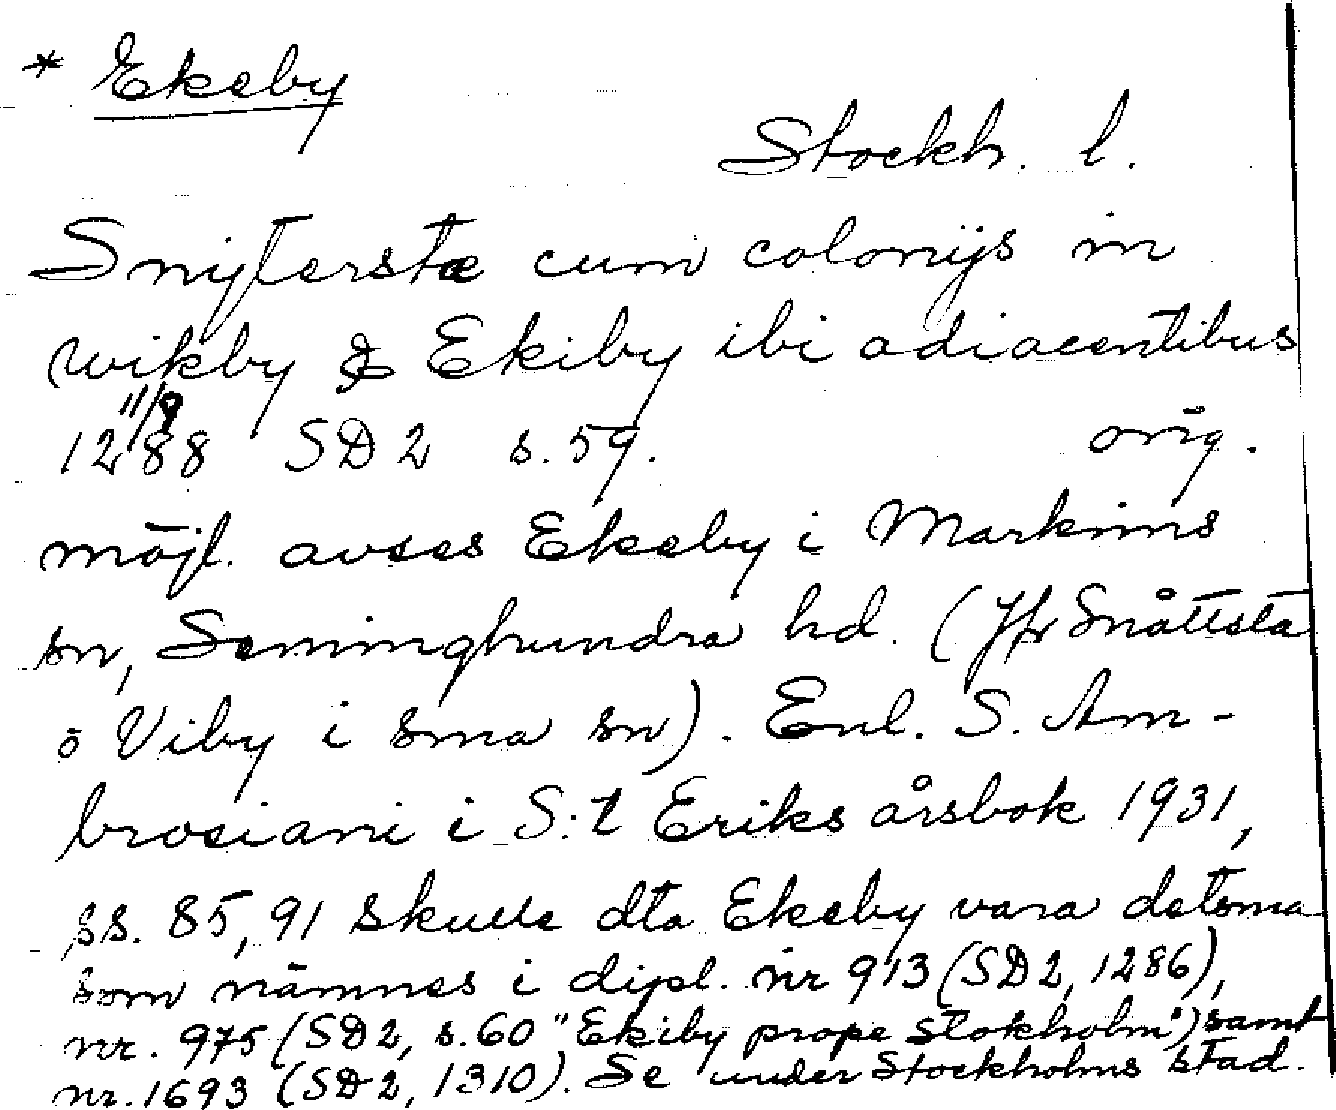 * Ekeby
Stockh. l.
Snijterstæ cum colonijs in
wikby & Ekiby ibi adiacentibus
11/8
1288 SD 2 s. 59. orig.
möjl. avses Ekeby i Markims
sn, Seminghundra hd. (Jfr Snåttsta
o Viby i sma sn). Enl. S. Am-
brosiani i S:t Eriks årsbok 1931,
ss. 85, 91 skulle dta Ekeby vara detsma
som nämnes i dipl. nr 913 (SD 2, 1286),
nr. 975 (SD 2, s. 60 "Ekiby prope Stokholm") samt
nr. 1693 (SD 2, 1310). Se under Stockholms stad.